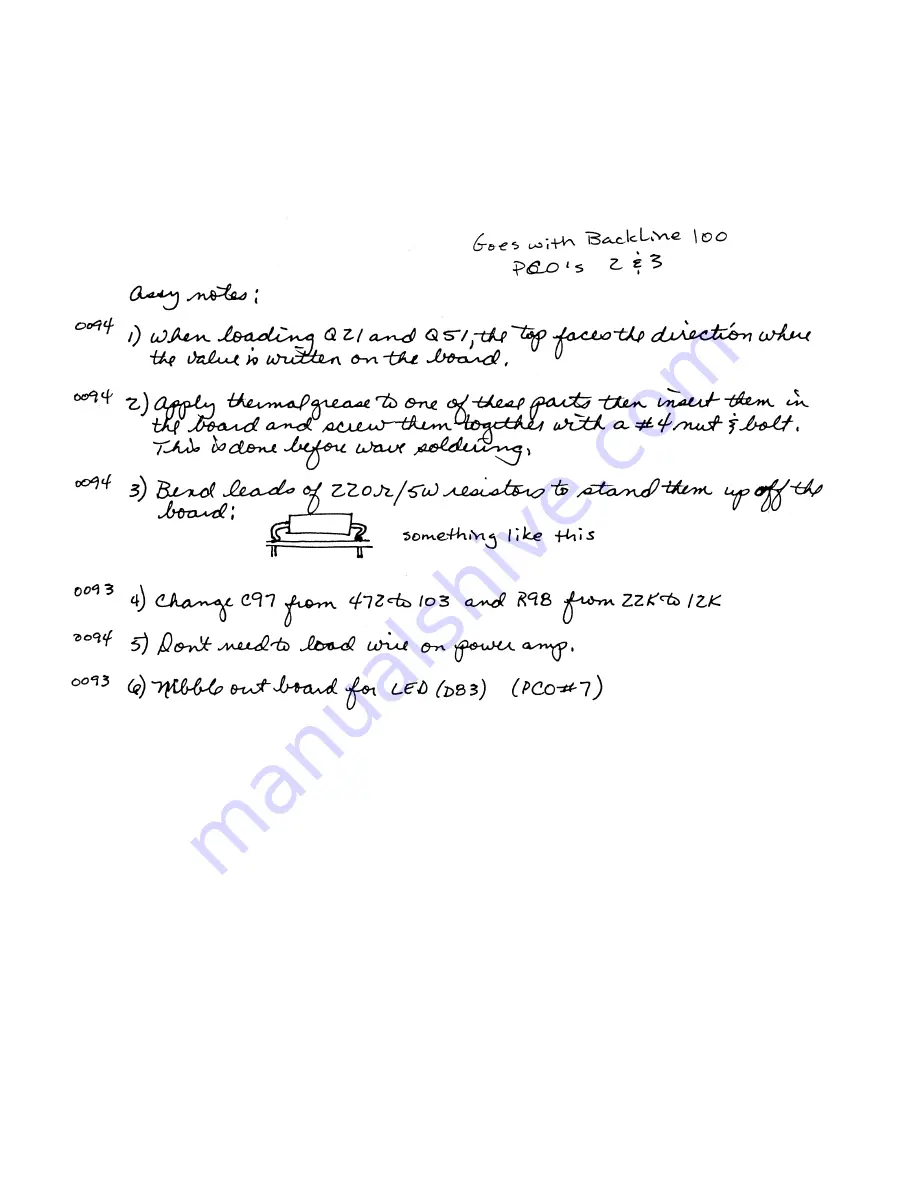 Goes with BackLine 100
PCO's 2 & 3
Assy notes:
0094 1) When loading Q21 and Q51, the top faces the direction where
the value is written on the board.
0094 2) Apply thermal grease to one of these parts then insert them in
the board and screw them together with a #4 nut & bolt.
This is done before wave soldering.
0094 3) Bend leads of 220Ω/5W resistors to stand them up off the
board:
something like this
0093 4) Change C97 from 472 to 103 and R98 from 22K to 12K
0094 5) Don't need to load wire on power amp.
0093 6) Nibble out board for LED (D83) (PCO#7)
manualshive.com